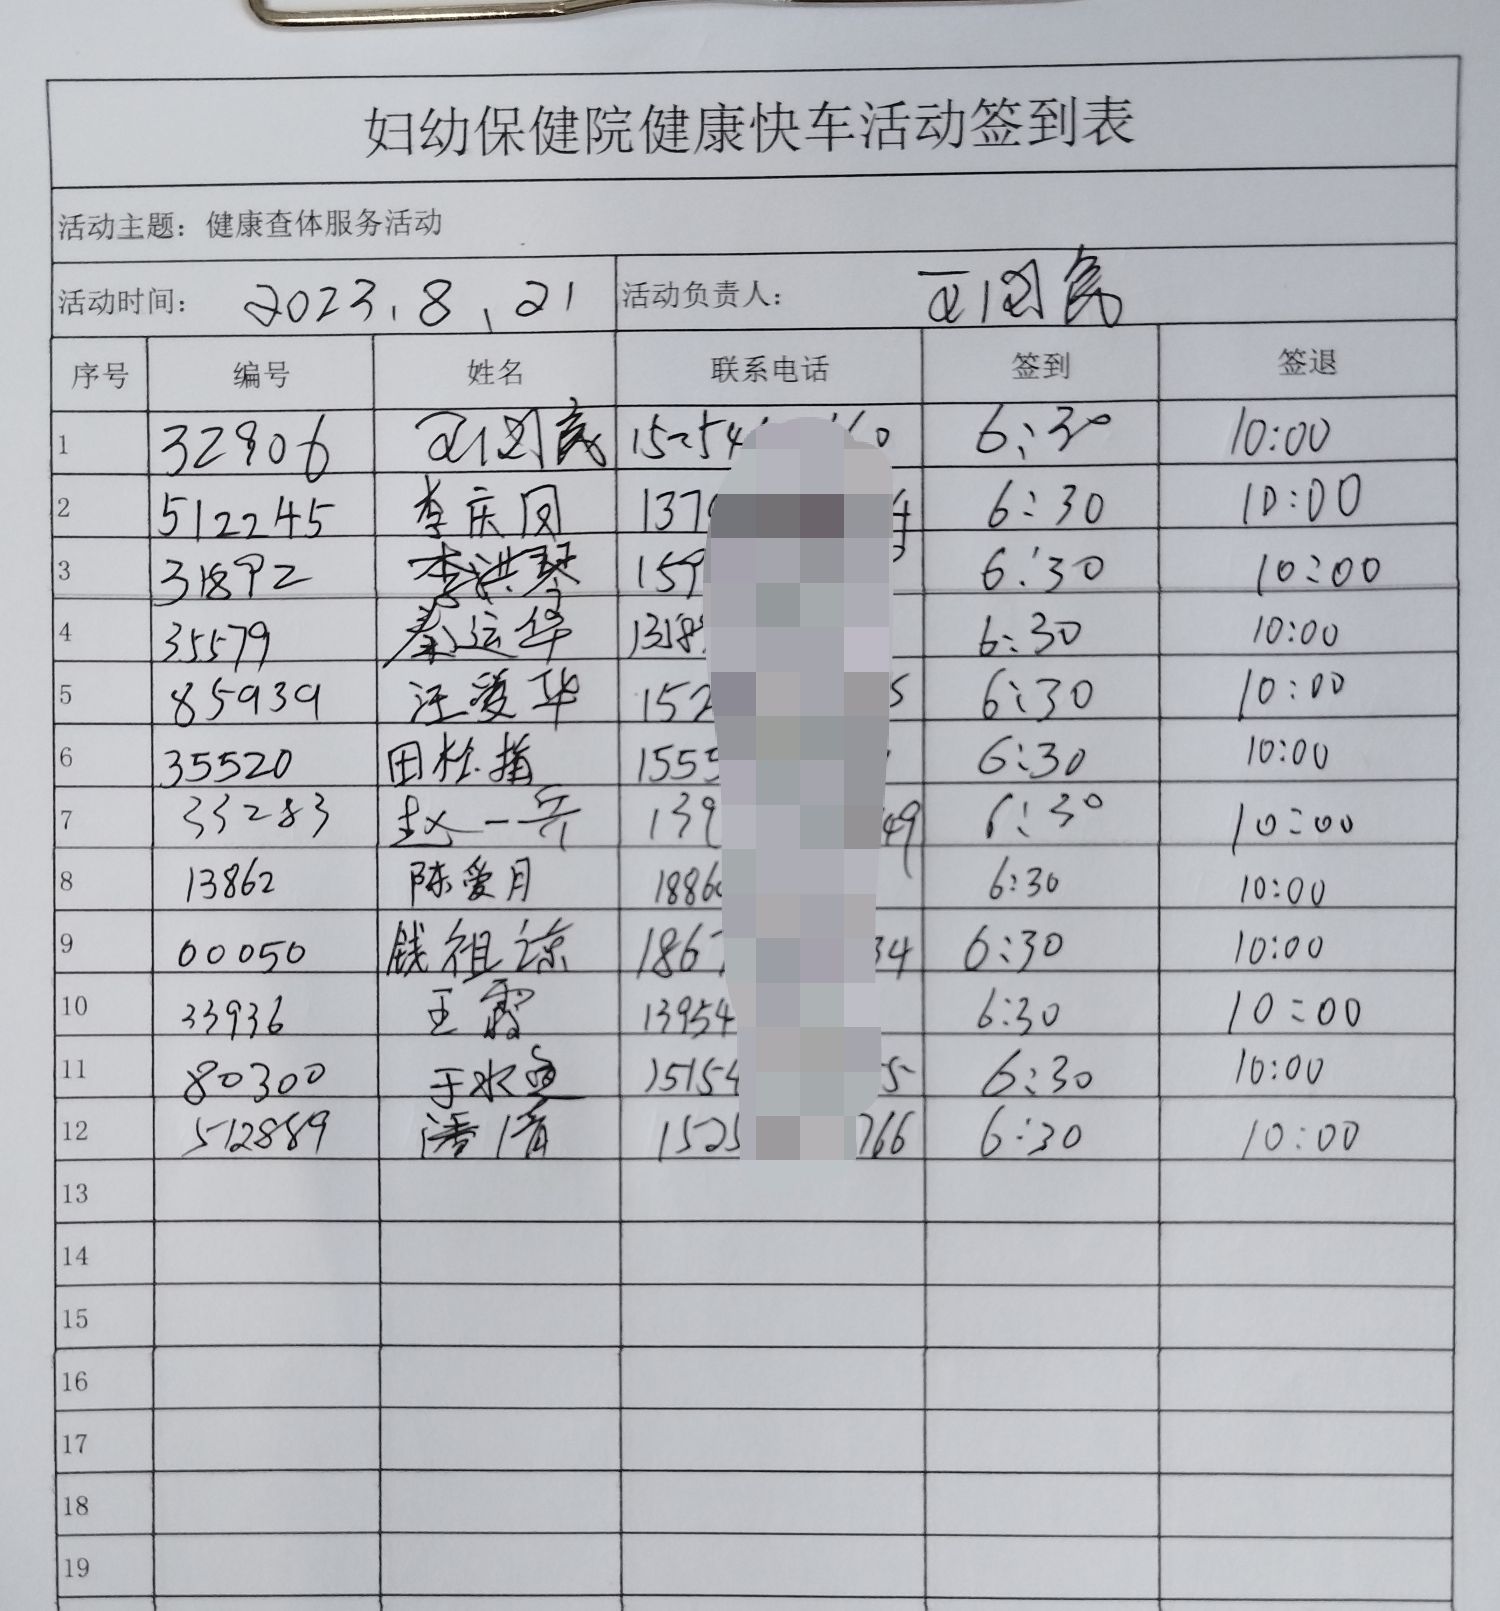 妇幼保健院健康快车活动签到表
活动主题：健康查体服务活动
活动时间： 2023.8.21 活动负责人：
序号 编号 姓名 联系电话 签到 签退
1 32906 15254 60 6:30 10:00
2 512245 李庆 137 4 6:30 10:00
3 31892 李洪琴 159 6:30 10:00
4 35579 秦运华 1358 6:30 10:00
5 85939 汪爱华 152 5 6:30 10:00
6 35520 田桂 1555 6:30 10:00
7 33283 赵一兵 139 49 6:30 10:00
8 13862 陈爱月 1886 6:30 10:00
9 00050 钱祖谅 1867 34 6:30 10:00
10 33936 王霞 13954 6:30 10:00
11 80300 于水 15154 5 6:30 10:00
12 512889 潘倩 1525 766 6:30 10:00
13
14
15
16
17
18
19